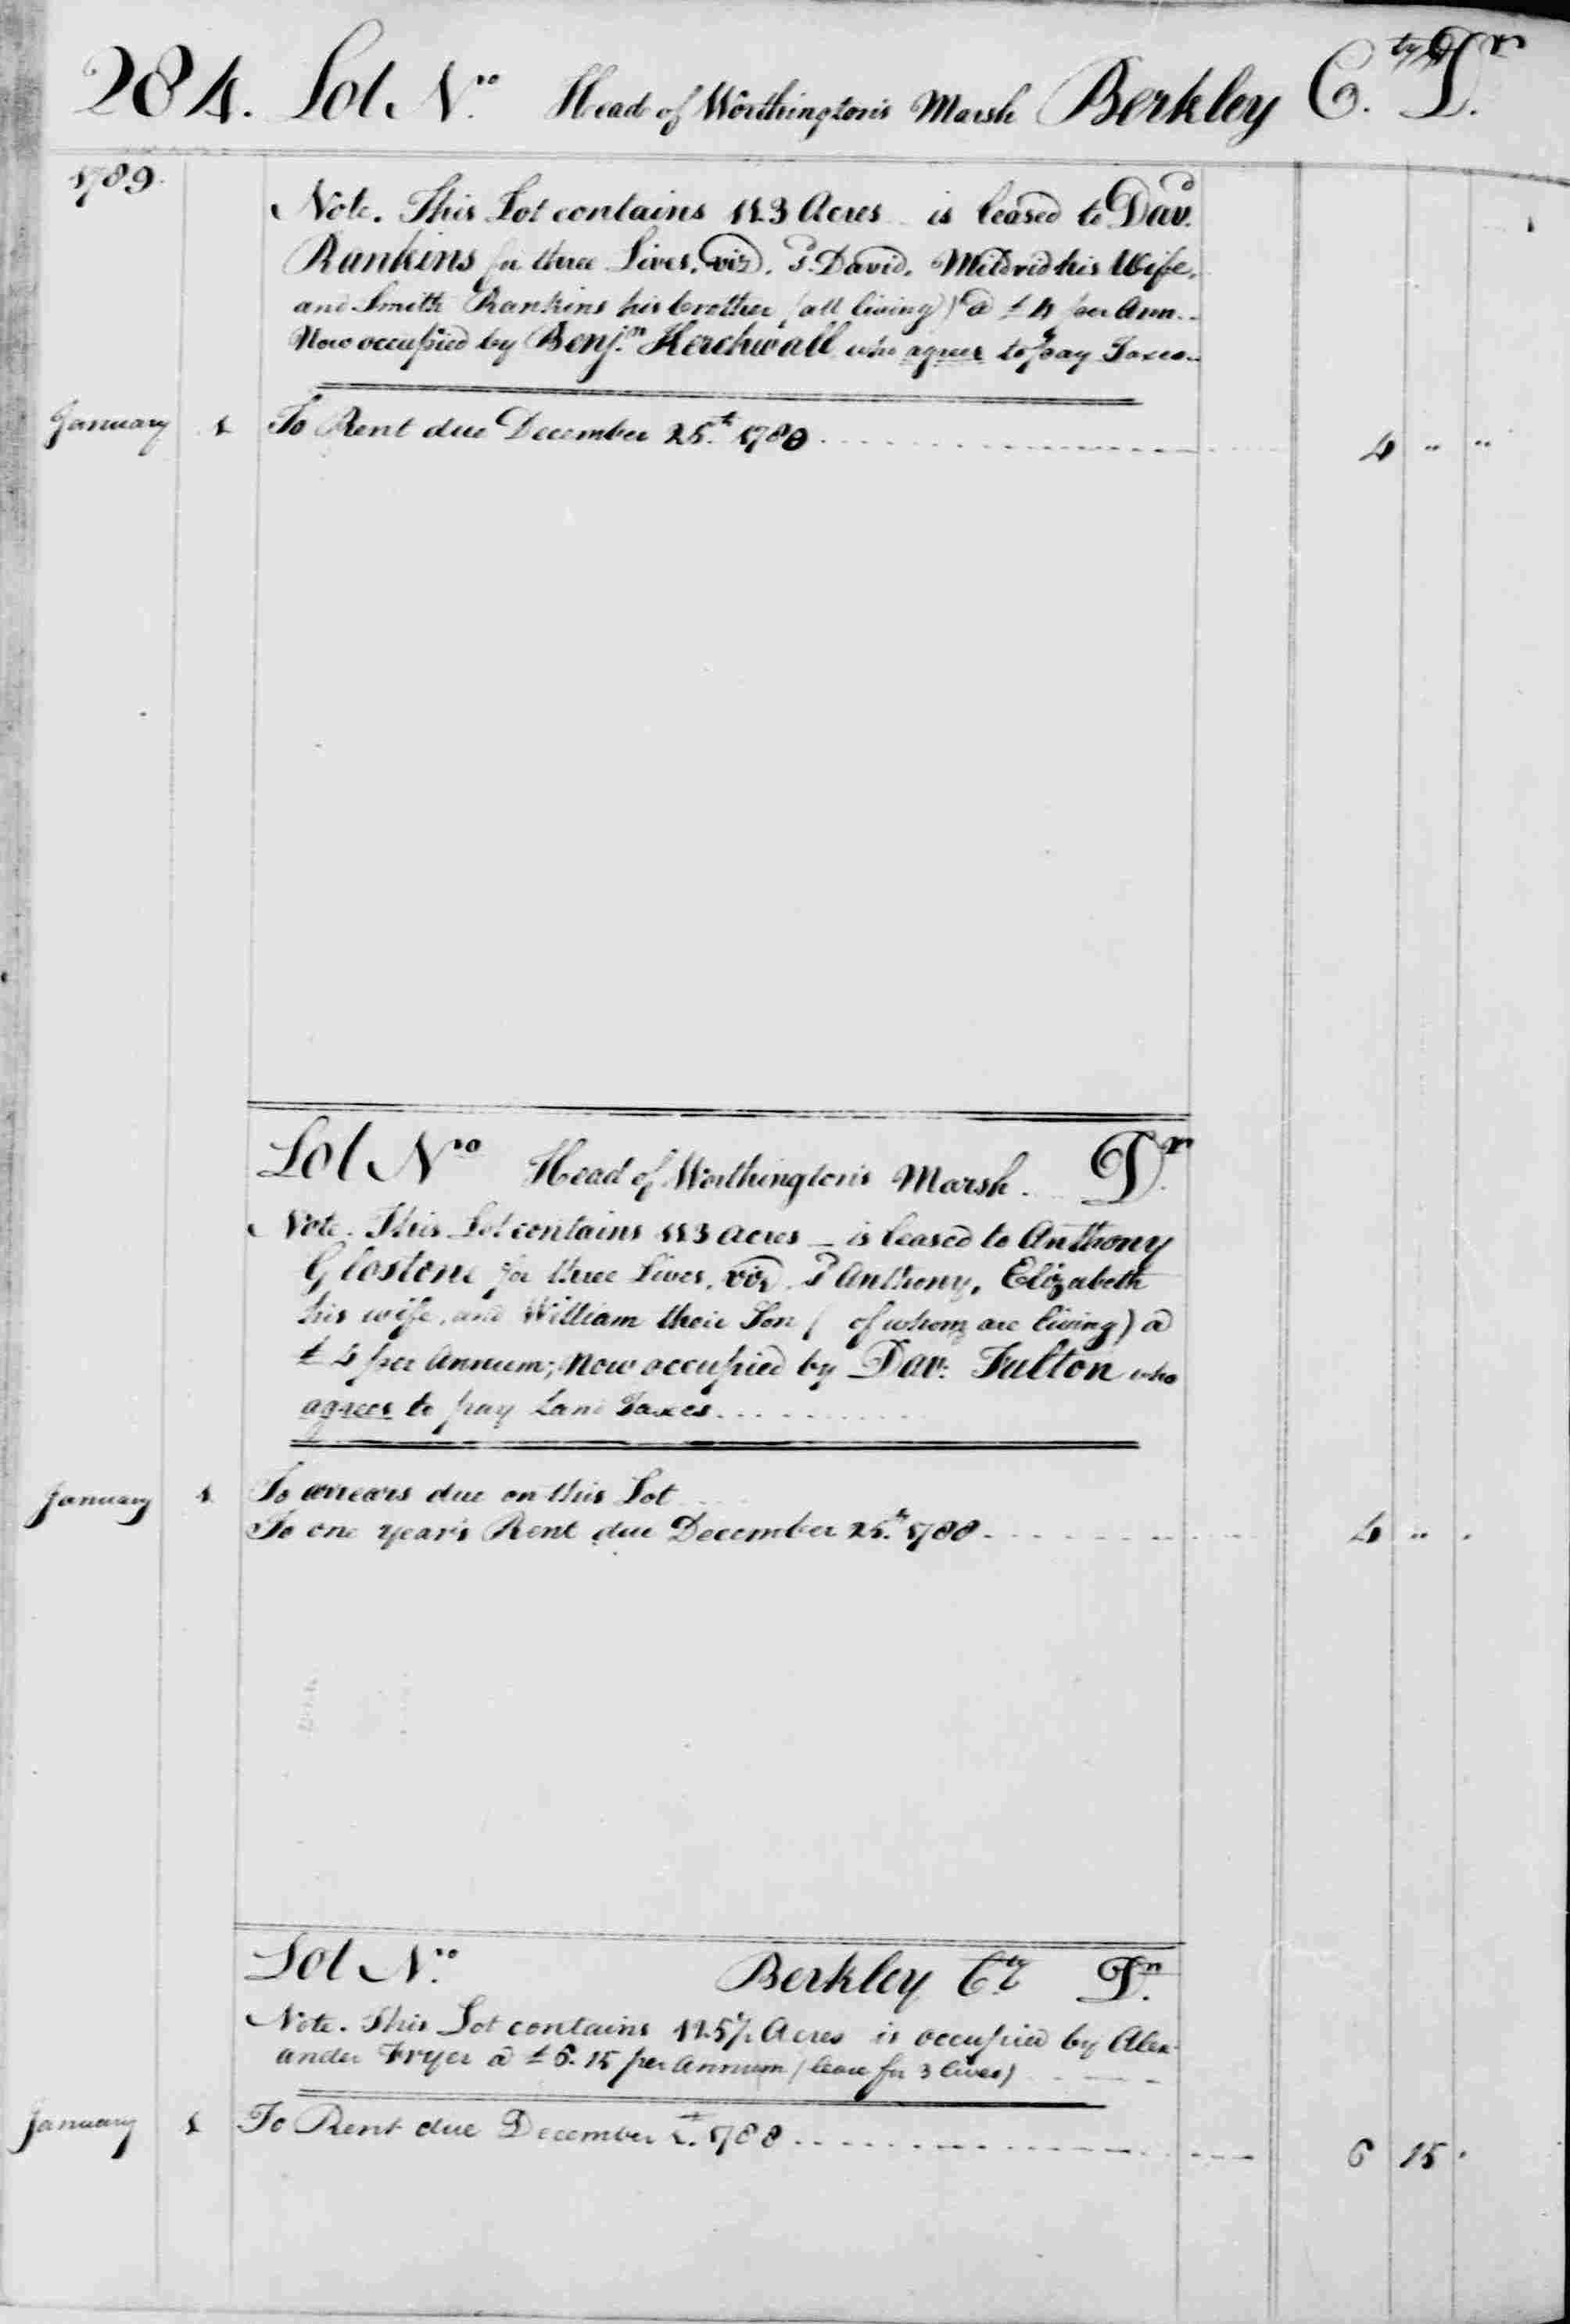 284. Lot No. Head of Worthington's Marsh Berkley Cty. Dr.
1789.
Note. This Lot contains 113 Acres is leased to Dav.
Rankins for three Lives, viz. sd. David, Mildred his Wife,
and Smith Rankins his brother (all living) @ £4 per Ann.
Now occupied by Benjn. Kerchwall who agrees to pay Taxes.
January 1 To Rent due December 25th. 1788 . . . 4 " "
Lot No. Head of Worthington's Marsh. Dr.
Note. This Lot contains 113 acres – is leased to Anthony
Glostone for three Lives, viz. sd Anthony, Elizabeth
his wife, and William their Son ( of whom are living) @
£ 4 per Annum; Now occupied by Dav: Fulton who
agrees to pay Land Taxes . . .
January 1 To arrears due on this Lot
To one year's Rent due December 25th. 1788 . . . 4 "
Lot No. Berkley Cty. Dr.
Note. This Lot contains Acres is occupied by Alex-
ander Fryer @ £6.15 per Annum (lease for 3 lives)
January 1 To Rent due December 1788 . . . 6 15